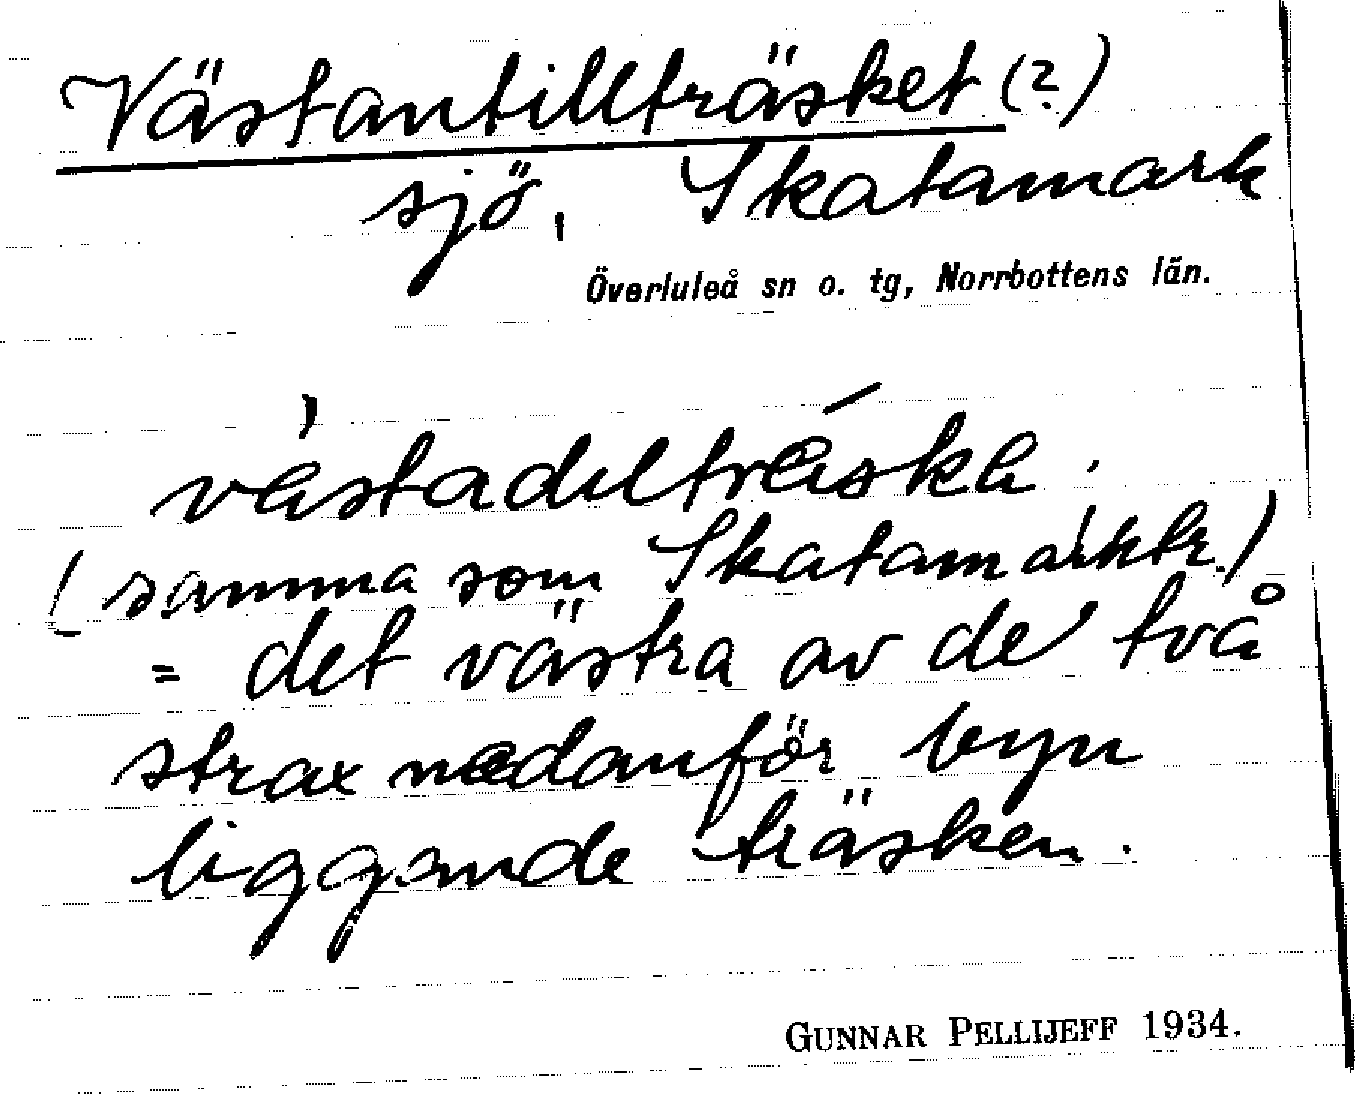 Västantillträsket (?)
sjö, Skatamark
Överluleå sn o. tg, Norrbottens län.
västadelträska
(samma som Skatamarktr.)
= det västra av de två
strax nedanför byn
liggande träsken.
GUNNAR PELLIJEFF 1934.